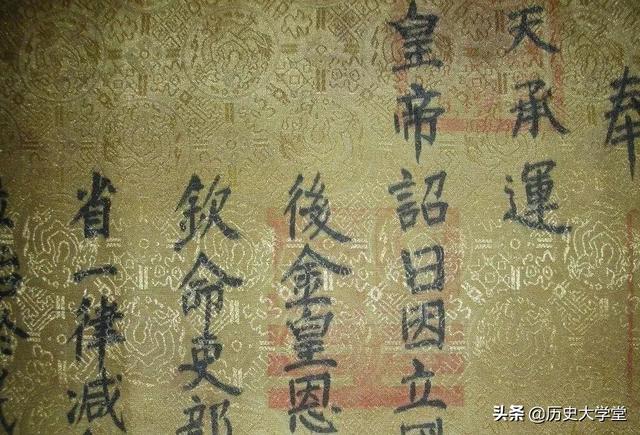 奉
天承運
皇帝詔曰因立國
後金皇恩
欽命吏部
省一律减
头条 @历史大学堂